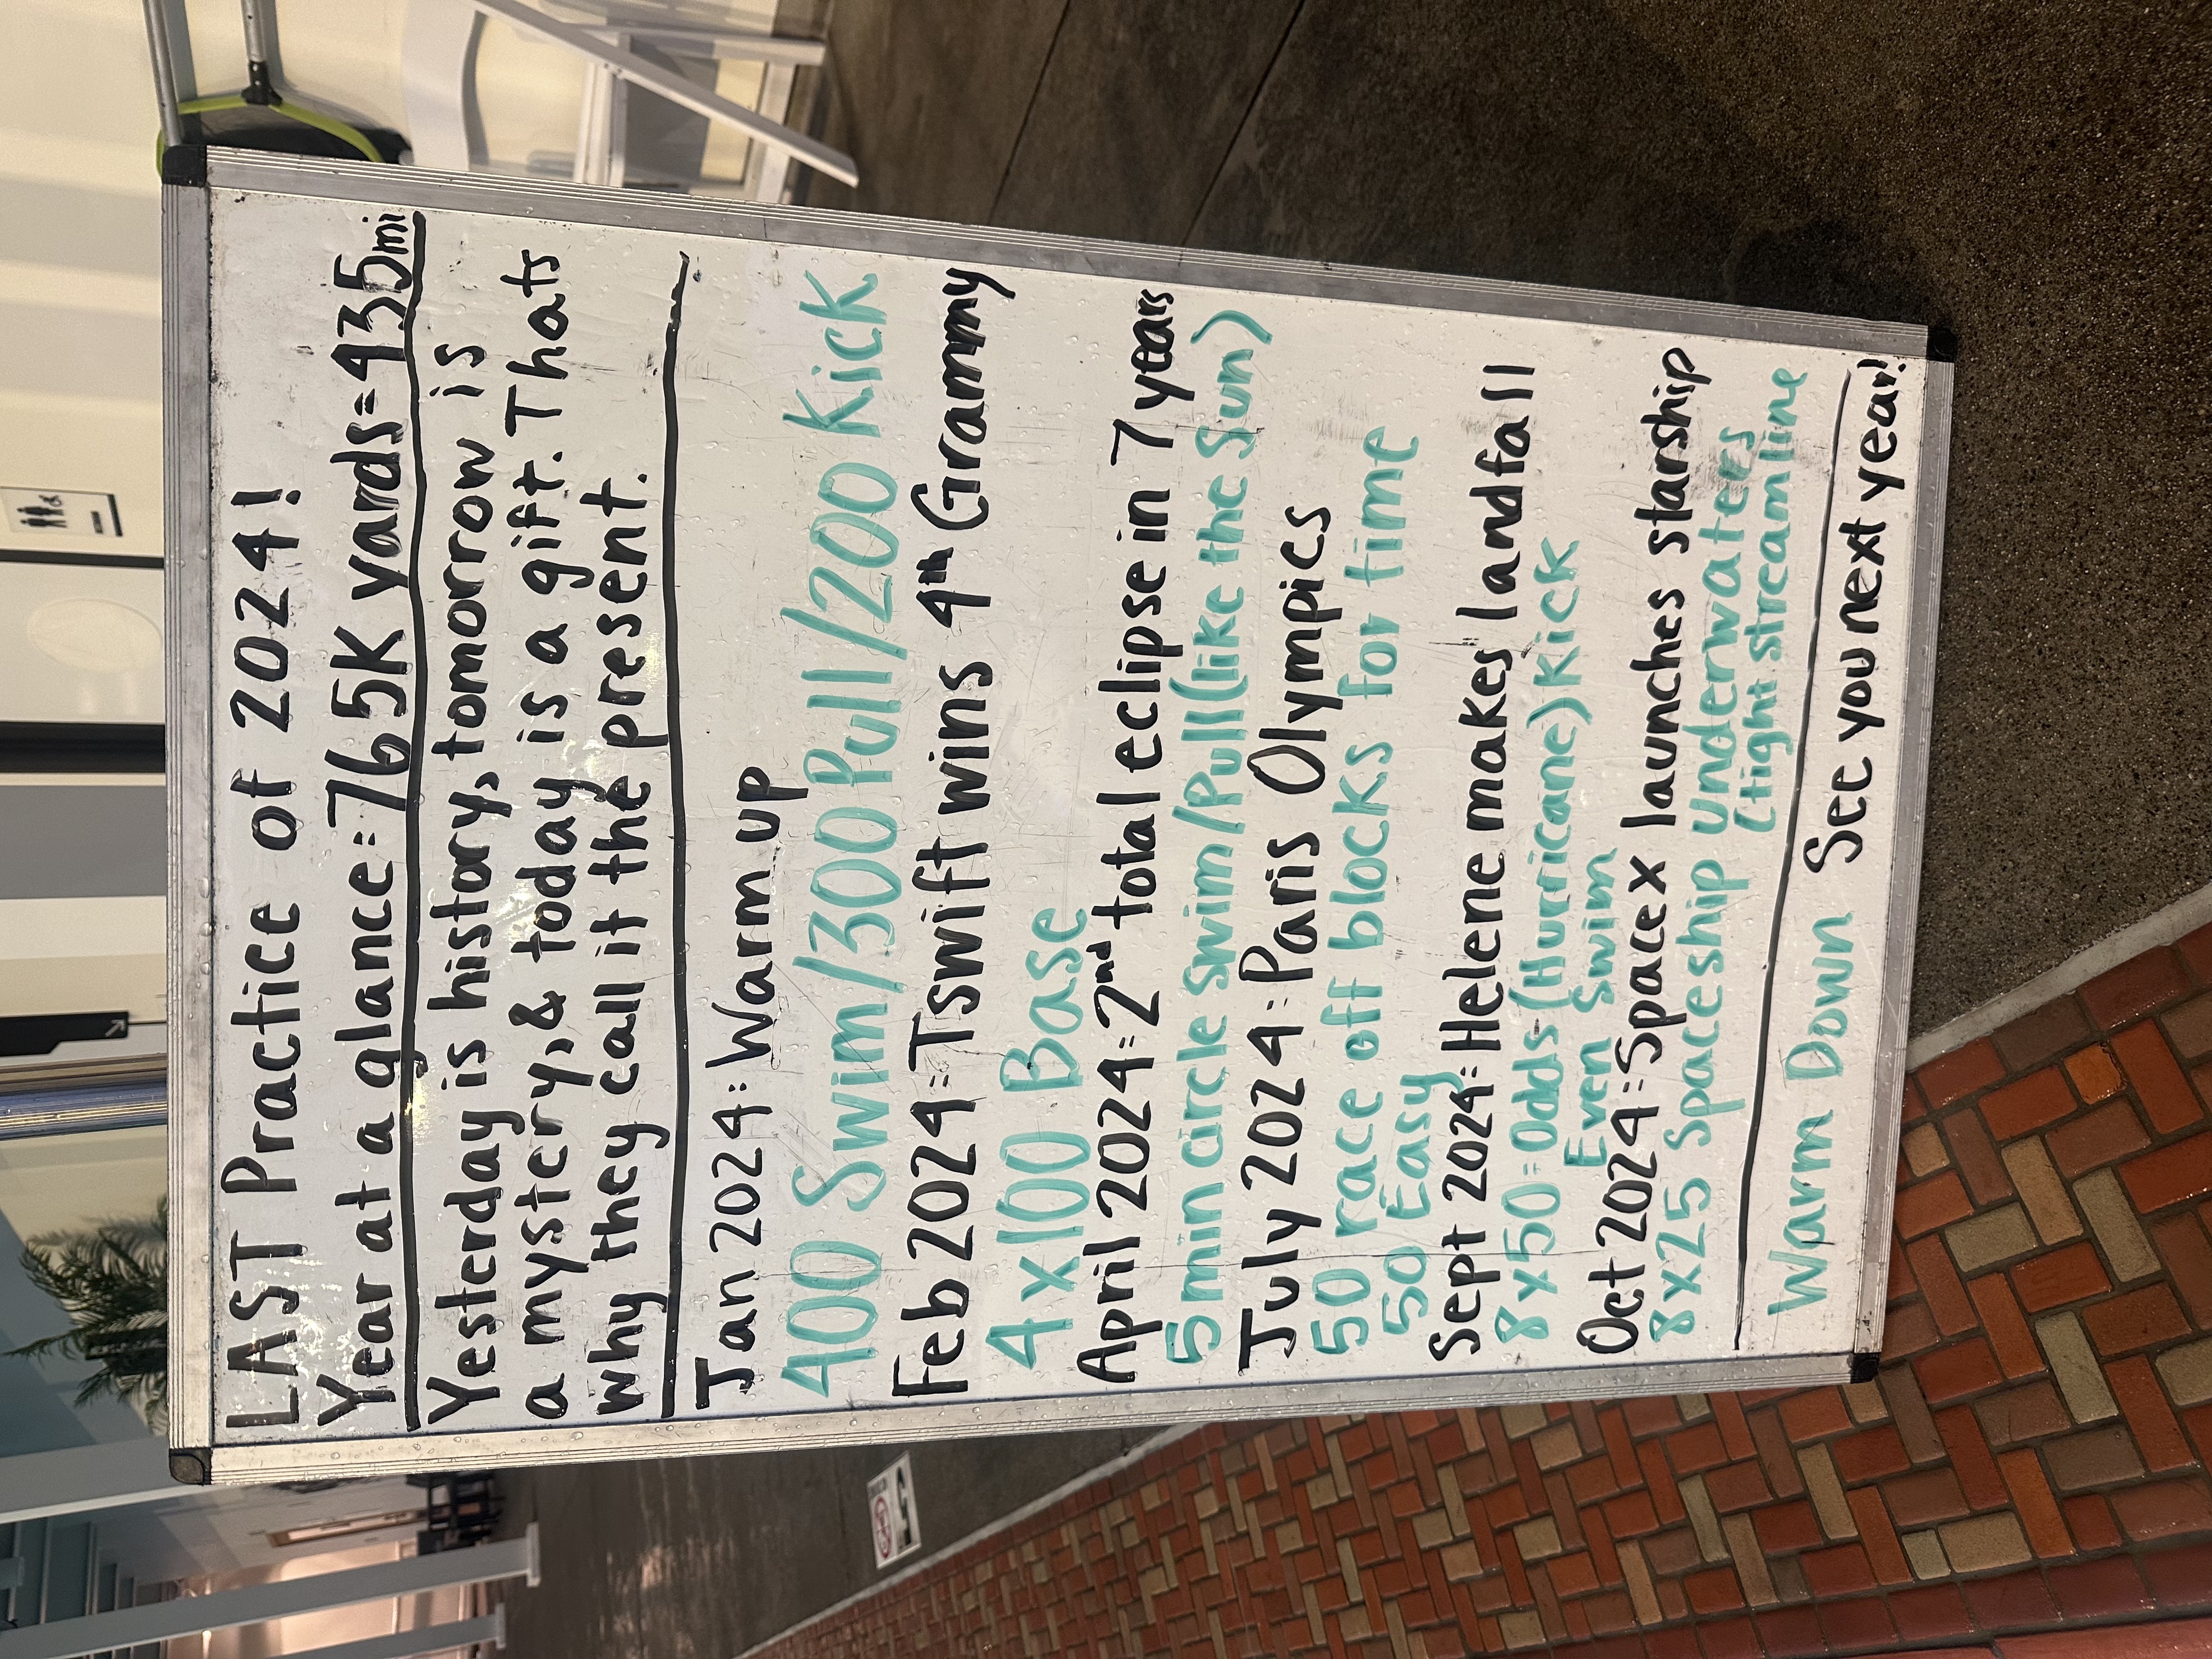 LAST Practice of 2024!
Year at a glance=765K yards=435mi
Yesterday is history, tomorrow is
a mystery, & today is a gift. Thats
why they call it the present.
Jan 2024: Warm up
400 Swim/300 Pull/200 Kick
Feb 2024=Tswift wins 4th Grammy
4x100 Base
April 2024=2nd total eclipse in 7 years
5 min circle swim/Pull(like the Sun)
July 2024: Paris Olympics
50 race off blocks for time
50 Easy
Sept 2024: Helene makes landfall
8x50=Odds (Hurricane) Kick
Even Swim
Oct 2024=Space X launches starship
8x25 Spaceship Underwaters
(tight streamline
Warm Down See you next year!